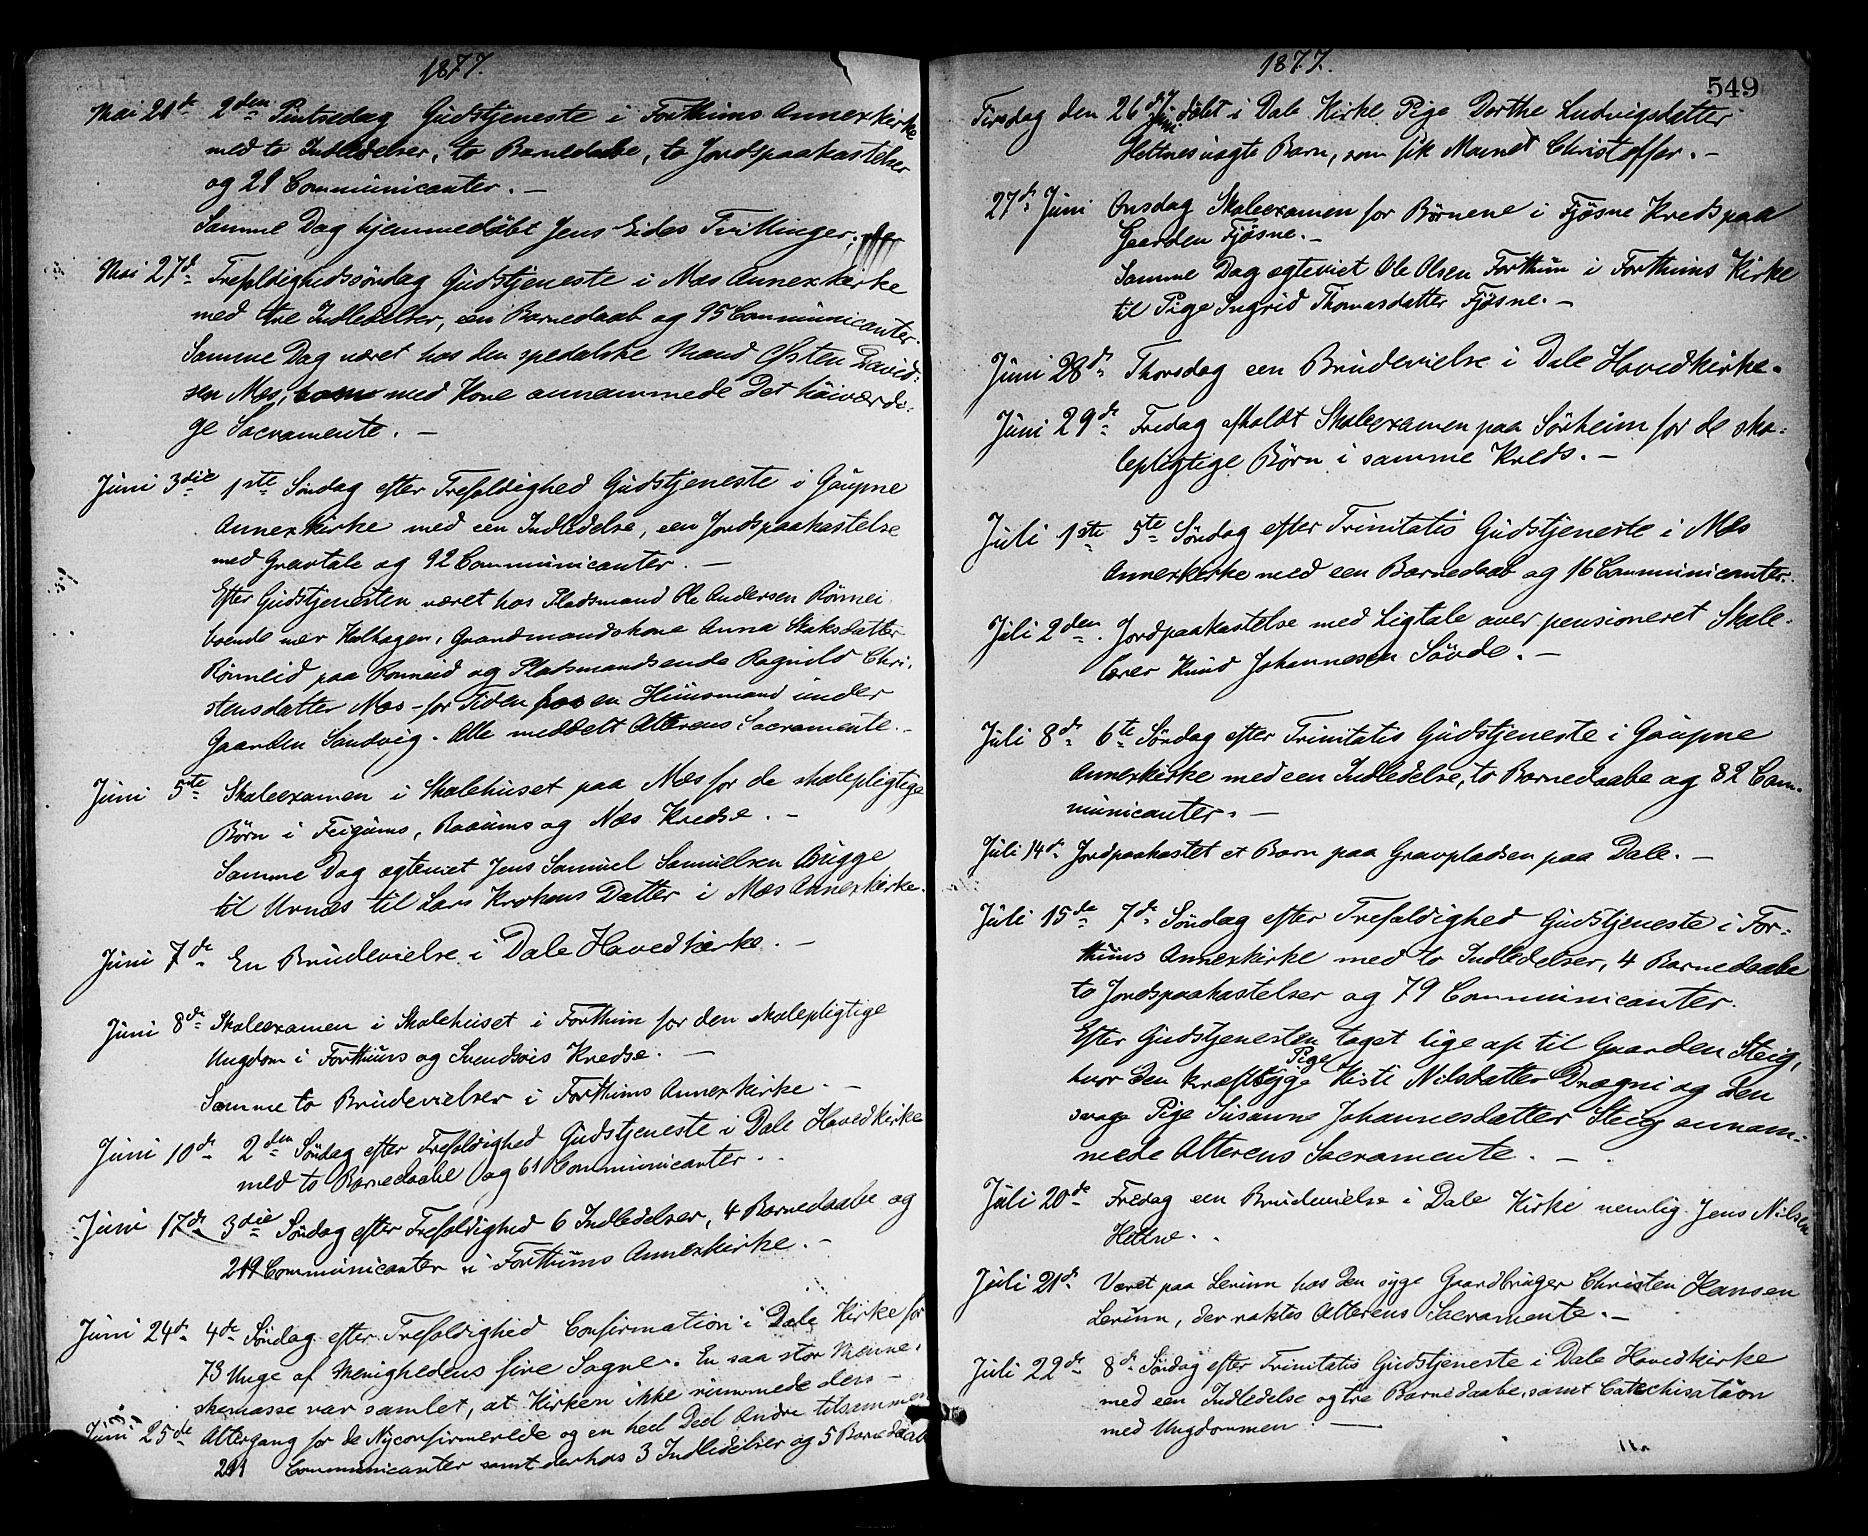 1877.
Mai 21de 2den Pintsedag Gudstjeneste i Forthuns Annexkirke
med to Indledelser, to Barnedaabe, to Jordspaakastelser
og 28 Communicanter. —
Samme Dag hjemmedöbt Jens Eides Tvillinger;
Mai 27de Trefoldighedssöndag Gudstjeneste i Næs Annexkirke
med tre Indledelser, een Barnedaab og 95 Communicanter.
Samme Dag været hos den spedalske Mand Østen David-
sen Næs, som med Kone annammede det höiværdi-
ge Sacramente. —
Juni 3die 1ste Söndag efter Trefoldighed Gudstjeneste i Gaupne
Annexkirke med een Indledelse, een Jordspaakastelse
med Gravtale og 92 Communicanter. —
Efter Gudstjenesten været hos Pladsmand Ole Andersen Rönnei
boende nær Kalhagen, Gaardmandskone Anna Slaksdatter
Rönneid paa Rönneid og Pladsmandsenke Ragnild Chri-
stensdatter Næs – for Tiden hos en Huusmand under
Gaarden Sandvig. Alle meddelt Alterens Sacramente. –
Juni 5te Skoleexamen i Skolehuset paa Næs for de skolepligtige
Börn i Feigums, Raaums og Næs Kredse. –
Samme Dag egteviet Jens Samuel Samuelsen Bugge
til Urnæs til Lars Krohns Datter i Næs Annexkirke.
Juni 7de En Brudevielse i Dale Hovedkirke. —
Juni 8de Skoleexamen i Skolehuset i Forthun for den skolepligtige
Ungdom i Forthuns og Svendsöis Kredse. —
Samme to Brudevielser i Forthuns Annexkirke. —
Juni 10de 2den Söndag efter Trefoldighed Gudstjeneste i Dale Hovedkirke
med to Barnedaabe og 61 Communicanter. .
Juni 17de 3die Söndag efter Trefoldighed 6 Indledelser, 4 Barnedaabe og
219 Communicanter i Forthuns Annexkirke. –
Juni 24de 4de Söndag efter Trefoldighed Confirmation i Dale Kirke for
73 Unge af Menighedens fire Sogne. En saa stor Menne-
skemasse var samlet, at Kirken ikke rummede den –
Juni 25de Altergang for de Nyconfirmerede og en hel Deel Andre tilsammen
211 Communicanter samt derhos 3 Indledelser og 5 Barnedaabe
1877.
549
Tirsdag den 26de Juni döbt i Dale Kirke Pige Dorthe Ludvigsdatter
Hettnes uægte Barn, som fik Navnet Christoffer. –
27de Juni Onsdag Skoleexamen for Börnene i Fjøsne Kreds paa
Gaarden Fjøsne. –
Samme Dag egteviet Ole Olsen Forthun i Forthuns Kirke
til Pige Ingrid Thomasdatter Fjøsne. –
Juni 28de Thorsdag een Brudevielse i Dale Hovedkirke.
Juni 29de Fredag afholdt Skoleexamen paa Sörheim for de sko-
lepligtige Börn i samme Kreds. –
Juli 1ste 5te Söndag efter Trinitatis Gudstjeneste i Næs
Annexkirke med een Barnedaab og 16 Communicanter.
Juli 2den Jordpaakastelse med Ligtale over pensioneret Skole-
lærer Knud Johannesen Sövde. –
Juli 8de 6te Söndag efter Trinitatis Gudstjeneste i Gaupne
Annexkirke med een Indledelse, to Barnedaabe og 82 Com-
municanter. –
Juli 14de Jordpaakastet et Barn paa Gravpladsen paa Dale. –
Juli 15de 7de Söndag efter Trefoldighed Gudstjeneste i For-
thuns Annexkirke med to Indledelser, 4 Barnedaabe
to Jordspaakastelser og 79 Communicanter.
Efter Gudstjenesten taget lige op til Gaarden Steig,
hvor den kræftsyge Pige Kisti Nilsdatter Drægni og den
svage Pige Susanne Johannesdatter Steig annam-
mede Alterens Sacramente. –
Juli 20de Fredag een Brudevielse i Dale Kirke nemlig Jens Nilsen
Hettne. .
Juli 21de Været paa Lerum hos den syge Gaardbruger Christen Hansen
Lerum, der raktes Alterens Sacramente. –
Juli 22de 8de Söndag efter Trinitatis Gudstjeneste i Dale Hovedkirke
med een Indledelse og tre Barnedaabe, samt Catechisation
med Ungdommen —